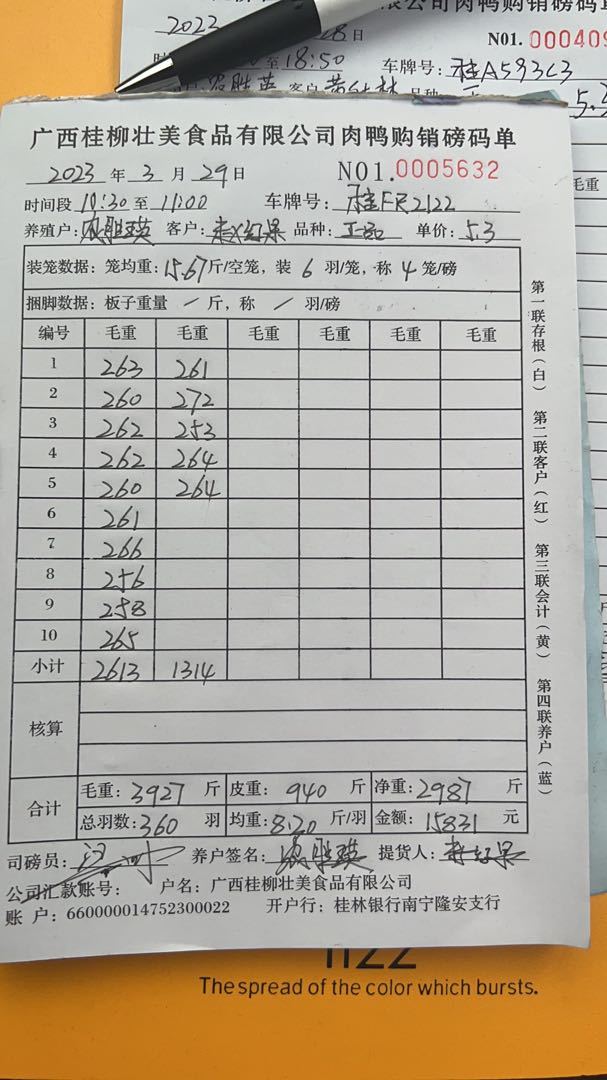 2023 28日
限公司肉鸭购销磅码单
N01. 000409
至18:50 车牌号:桂A593C3
5.3
毛重
广西桂柳壮美食品有限公司肉鸭购销磅码单
2023年3月29日 N01.0005632
时间段10:30至11:00 车牌号:桂FR2122
养殖户: 客户: 品种:正品 单价:5.3
装笼数据:笼均重:15.67斤/空笼,装6羽/笼,称4笼/磅
捆脚数据:板子重量/斤,称/羽/磅
编号 毛重 毛重 毛重 毛重 毛重 毛重
1 263 261
2 260 272
3 262 253
4 262 264
5 260 264
6 261
7 266
8 256
9 258
10 265
小计 2613 1314
核算
合计 毛重:3927斤 皮重:940斤 净重:2987斤
总羽数:360羽 均重:8.20斤/羽 金额:15831元
司磅员: 养户签名: 提货人:
公司汇款账号: 户名:广西桂柳壮美食品有限公司
账 户:660000014752300022 开户行:桂林银行南宁隆安支行
第一联存根(白) 第二联客户(红) 第三联会计(黄) 第四联养户(蓝)
The spread of the color which bursts.